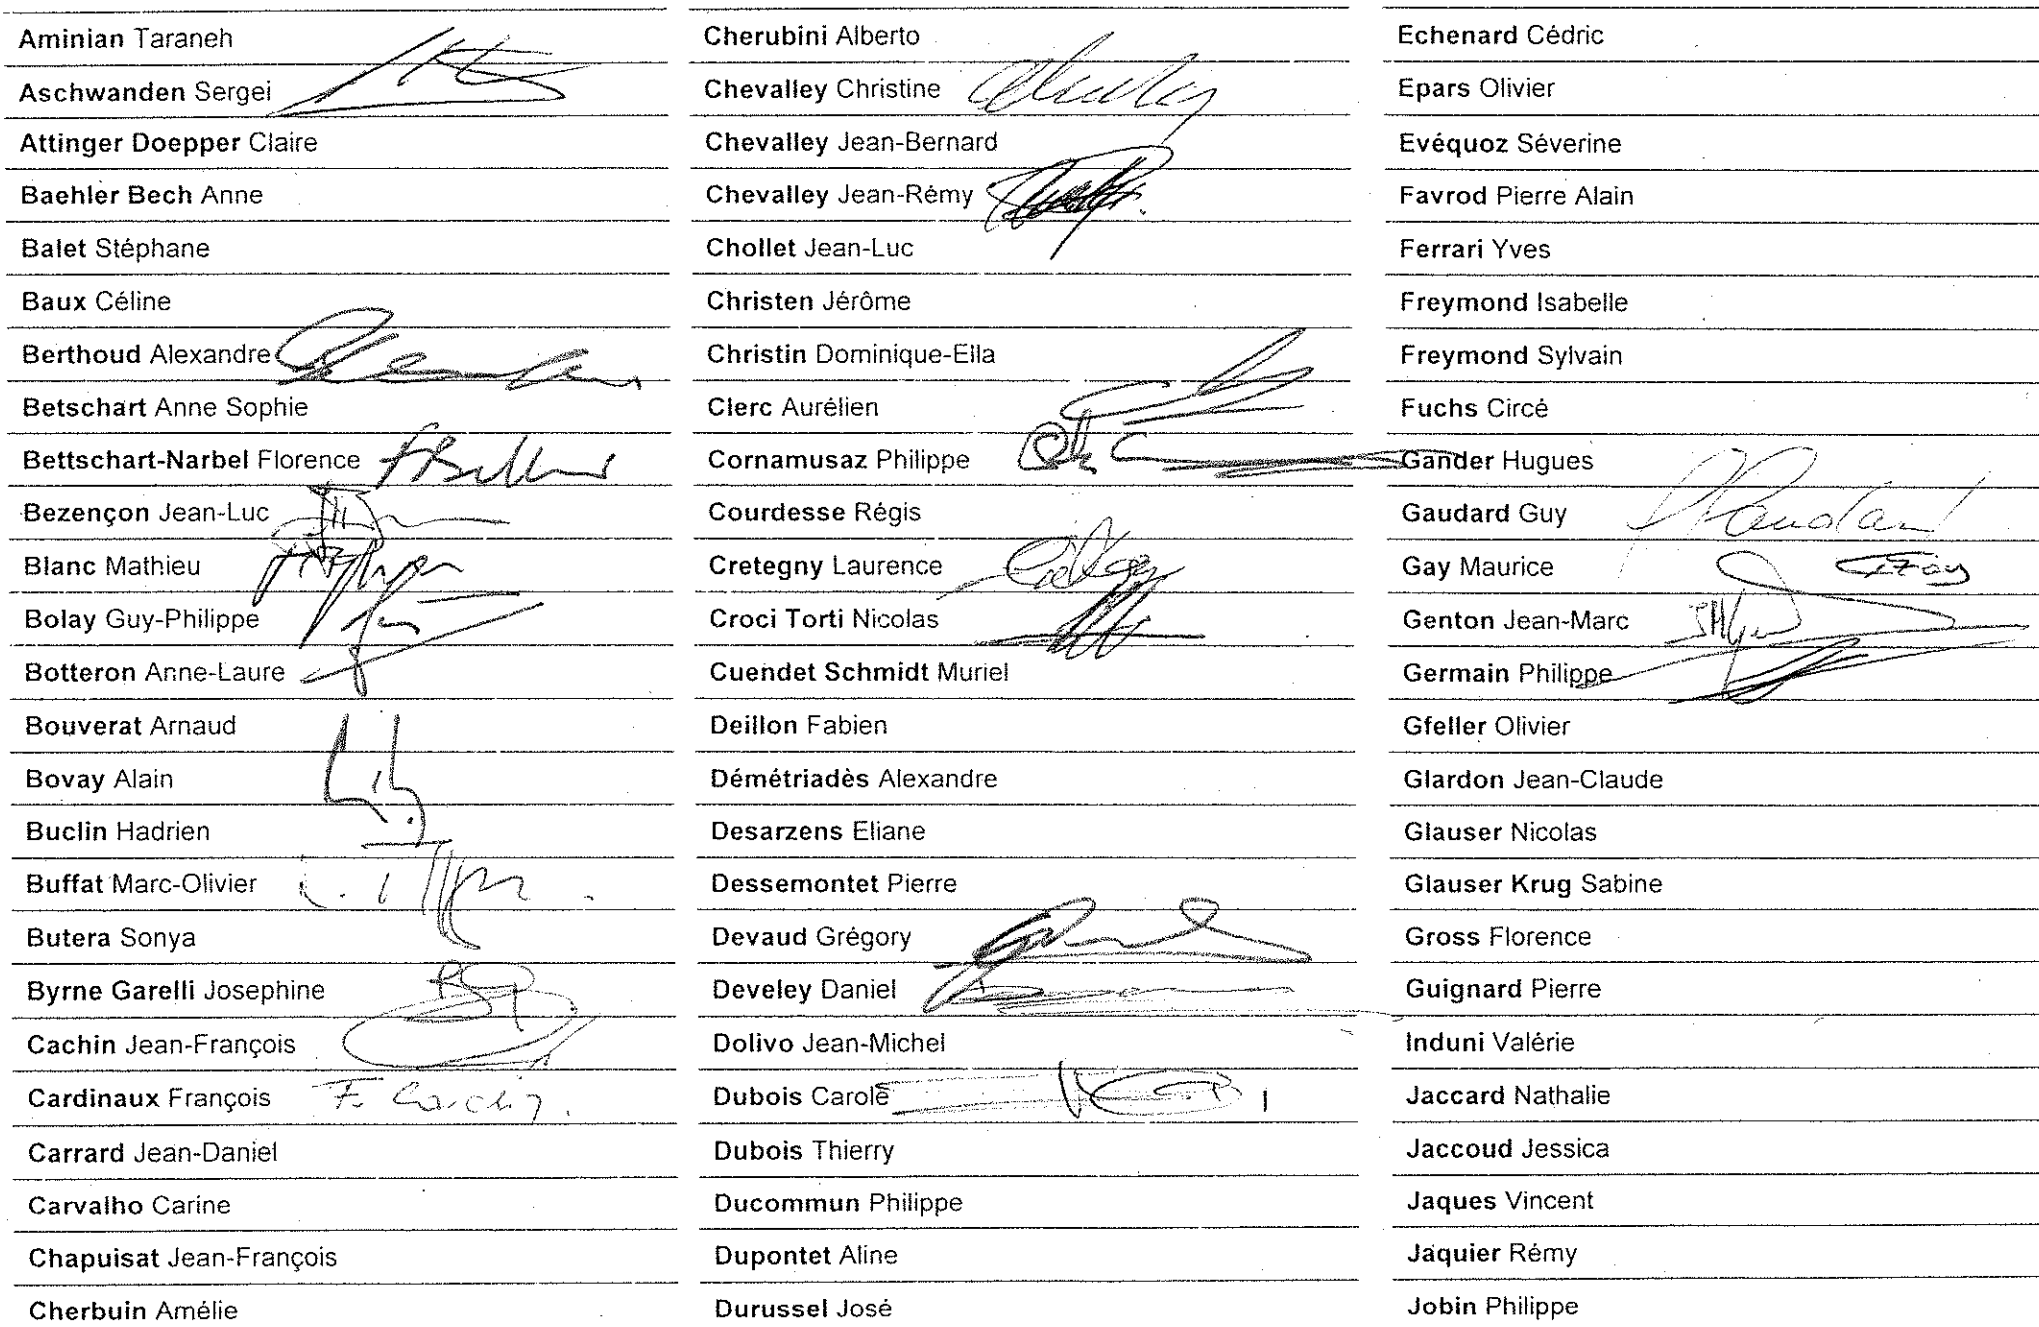 Aminian Taraneh
Aschwanden Sergei
Attinger Doepper Claire
Baehler Bech Anne
Balet Stéphane
Baux Céline
Berthoud Alexandre
Betschart Anne Sophie
Bettschart-Narbel Florence
Bezençon Jean-Luc
Blanc Mathieu
Bolay Guy-Philippe
Botteron Anne-Laure
Bouverat Arnaud
Bovay Alain
Buclin Hadrien
Buffat Marc-Olivier
Butera Sonya
Byrne Garelli Josephine
Cachin Jean-François
Cardinaux François
Carrard Jean-Daniel
Carvalho Carine
Chapuisat Jean-François
Cherbuin Amélie
Cherubini Alberto
Chevalley Christine
Chevalley Jean-Bernard
Chevalley Jean-Rémy
Chollet Jean-Luc
Christen Jérôme
Christin Dominique-Ella
Clerc Aurélien
Cornamusaz Philippe
Courdesse Régis
Cretegny Laurence
Croci Torti Nicolas
Cuendet Schmidt Muriel
Deillon Fabien
Démétriadès Alexandre
Desarzens Eliane
Dessemontet Pierre
Devaud Grégory
Develey Daniel
Dolivo Jean-Michel
Dubois Carole
Dubois Thierry
Ducommun Philippe
Dupontet Aline
Durussel José
Echenard Cédric
Epars Olivier
Evéquoz Séverine
Favrod Pierre Alain
Ferrari Yves
Freymond Isabelle
Freymond Sylvain
Fuchs Circé
Gander Hugues
Gaudard Guy
Gay Maurice
Genton Jean-Marc
Germain Philippe
Gfeller Olivier
Glardon Jean-Claude
Glauser Nicolas
Glauser Krug Sabine
Gross Florence
Guignard Pierre
Induni Valérie
Jaccard Nathalie
Jaccoud Jessica
Jaques Vincent
Jaquier Rémy
Jobin Philippe